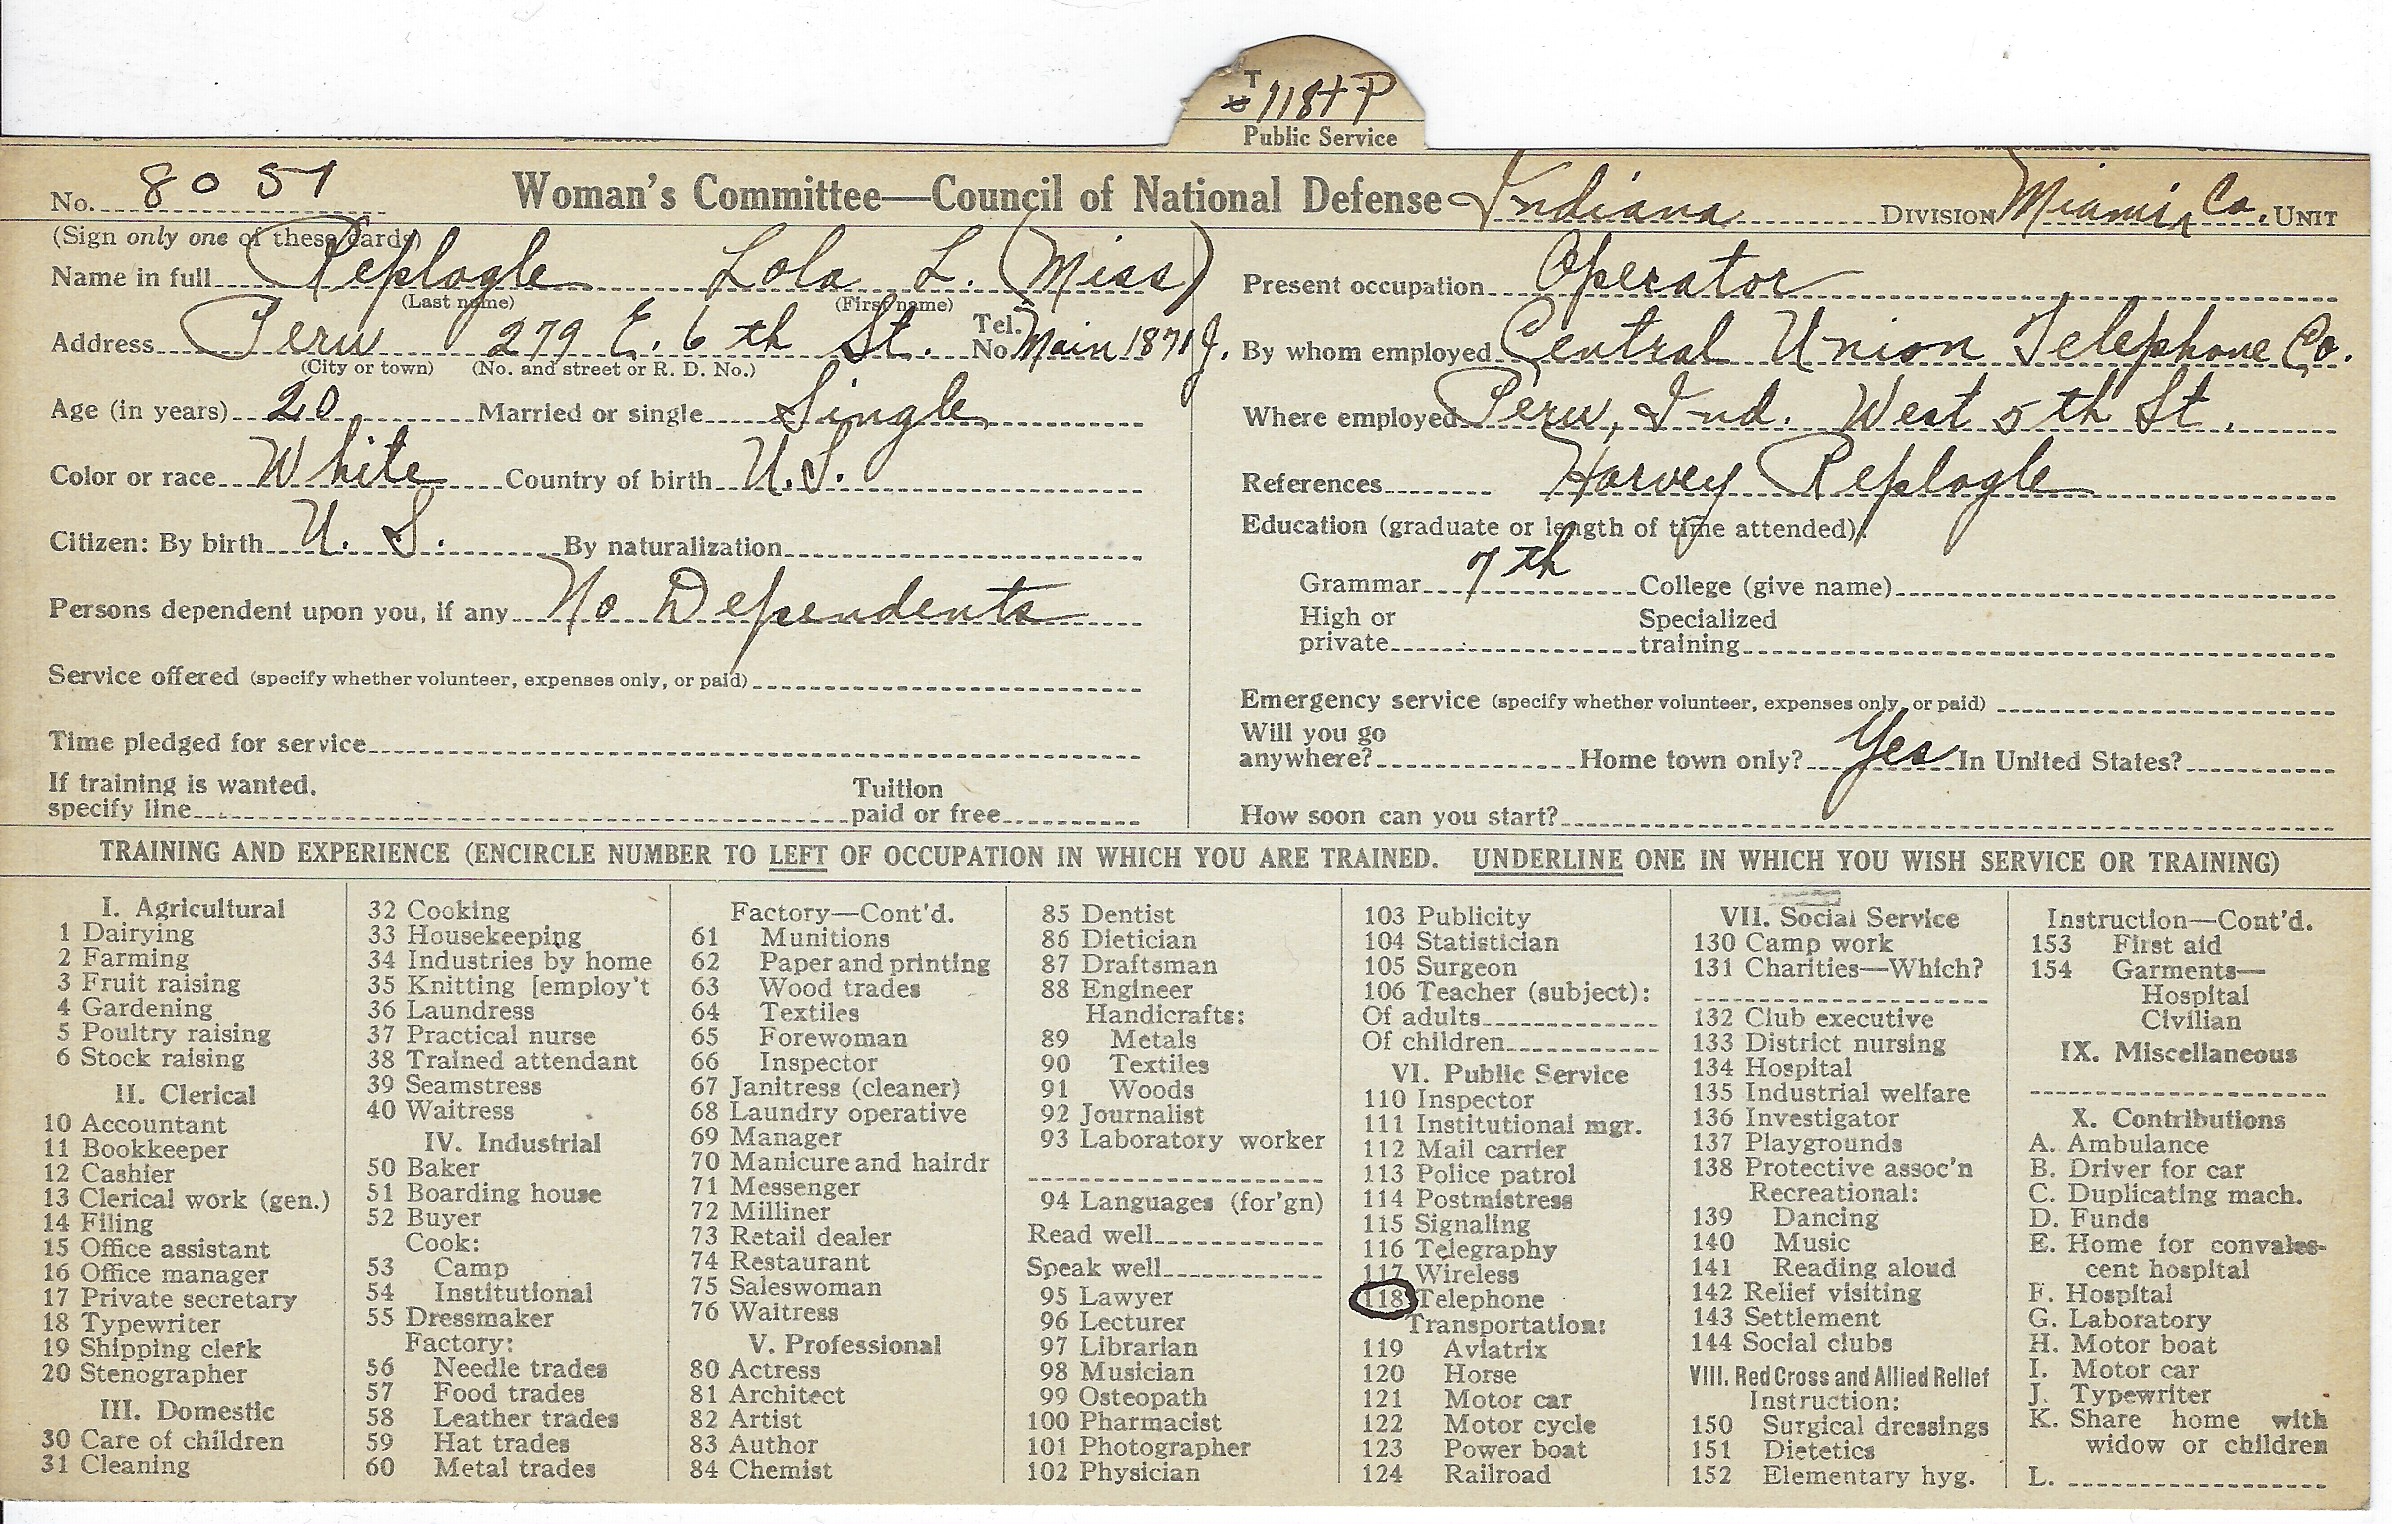 T
U 118 + P
Public Service
No. 8051 Woman's Committee—Council of National Defense Indiana DIVISION Miami Co. UNIT
(Sign only one of these cards)
Name in full Replogle Lola L. (Miss)
(Last name) (First name)
Address Peru 279 E. 6th St. Tel. No. Main 1871 J.
(City or town) (No. and street or R. D. No.)
Age (in years) 20 Married or single Single
Color or race White Country of birth U.S.
Citizen: By birth U. S. By naturalization
Persons dependent upon you, if any No Dependents
Service offered (specify whether volunteer, expenses only, or paid)
Time pledged for service
If training is wanted, specify line Tuition paid or free
Present occupation Operator
By whom employed Central Union Telephone Co.
Where employed Peru, Ind. West 5th St.
References Harvey Replogle
Education (graduate or length of time attended):
Grammar 7th College (give name)
High or private Specialized training
Emergency service (specify whether volunteer, expenses only, or paid)
Will you go anywhere? Home town only? Yes In United States?
How soon can you start?
TRAINING AND EXPERIENCE (ENCIRCLE NUMBER TO LEFT OF OCCUPATION IN WHICH YOU ARE TRAINED. UNDERLINE ONE IN WHICH YOU WISH SERVICE OR TRAINING)
I. Agricultural
1 Dairying
2 Farming
3 Fruit raising
4 Gardening
5 Poultry raising
6 Stock raising
II. Clerical
10 Accountant
11 Bookkeeper
12 Cashier
13 Clerical work (gen.)
14 Filing
15 Office assistant
16 Office manager
17 Private secretary
18 Typewriter
19 Shipping clerk
20 Stenographer
III. Domestic
30 Care of children
31 Cleaning
32 Cooking
33 Housekeeping
34 Industries by home
35 Knitting [employ't
36 Laundress
37 Practical nurse
38 Trained attendant
39 Seamstress
40 Waitress
IV. Industrial
50 Baker
51 Boarding house
52 Buyer
Cook:
53 Camp
54 Institutional
55 Dressmaker
Factory:
56 Needle trades
57 Food trades
58 Leather trades
59 Hat trades
60 Metal trades
Factory—Cont'd.
61 Munitions
62 Paper and printing
63 Wood trades
64 Textiles
65 Forewoman
66 Inspector
67 Janitress (cleaner)
68 Laundry operative
69 Manager
70 Manicure and hairdr
71 Messenger
72 Milliner
73 Retail dealer
74 Restaurant
75 Saleswoman
76 Waitress
V. Professional
80 Actress
81 Architect
82 Artist
83 Author
84 Chemist
85 Dentist
86 Dietician
87 Draftsman
88 Engineer
Handicrafts:
89 Metals
90 Textiles
91 Woods
92 Journalist
93 Laboratory worker
94 Languages (for'gn)
Read well
Speak well
95 Lawyer
96 Lecturer
97 Librarian
98 Musician
99 Osteopath
100 Pharmacist
101 Photographer
102 Physician
103 Publicity
104 Statistician
105 Surgeon
106 Teacher (subject):
Of adults
Of children
VI. Public Service
110 Inspector
111 Institutional mgr.
112 Mail carrier
113 Police patrol
114 Postmistress
115 Signaling
116 Telegraphy
117 Wireless
118 Telephone
Transportation:
119 Aviatrix
120 Horse
121 Motor car
122 Motor cycle
123 Power boat
124 Railroad
VII. Social Service
130 Camp work
131 Charities—Which?
132 Club executive
133 District nursing
134 Hospital
135 Industrial welfare
136 Investigator
137 Playgrounds
138 Protective assoc'n
Recreational:
139 Dancing
140 Music
141 Reading aloud
142 Relief visiting
143 Settlement
144 Social clubs
VIII. Red Cross and Allied Relief
Instruction:
150 Surgical dressings
151 Dietetics
152 Elementary hyg.
Instruction—Cont'd.
153 First aid
154 Garments—
Hospital
Civilian
IX. Miscellaneous
X. Contributions
A. Ambulance
B. Driver for car
C. Duplicating mach.
D. Funds
E. Home for convales-
cent hospital
F. Hospital
G. Laboratory
H. Motor boat
I. Motor car
J. Typewriter
K. Share home with
widow or children
L.